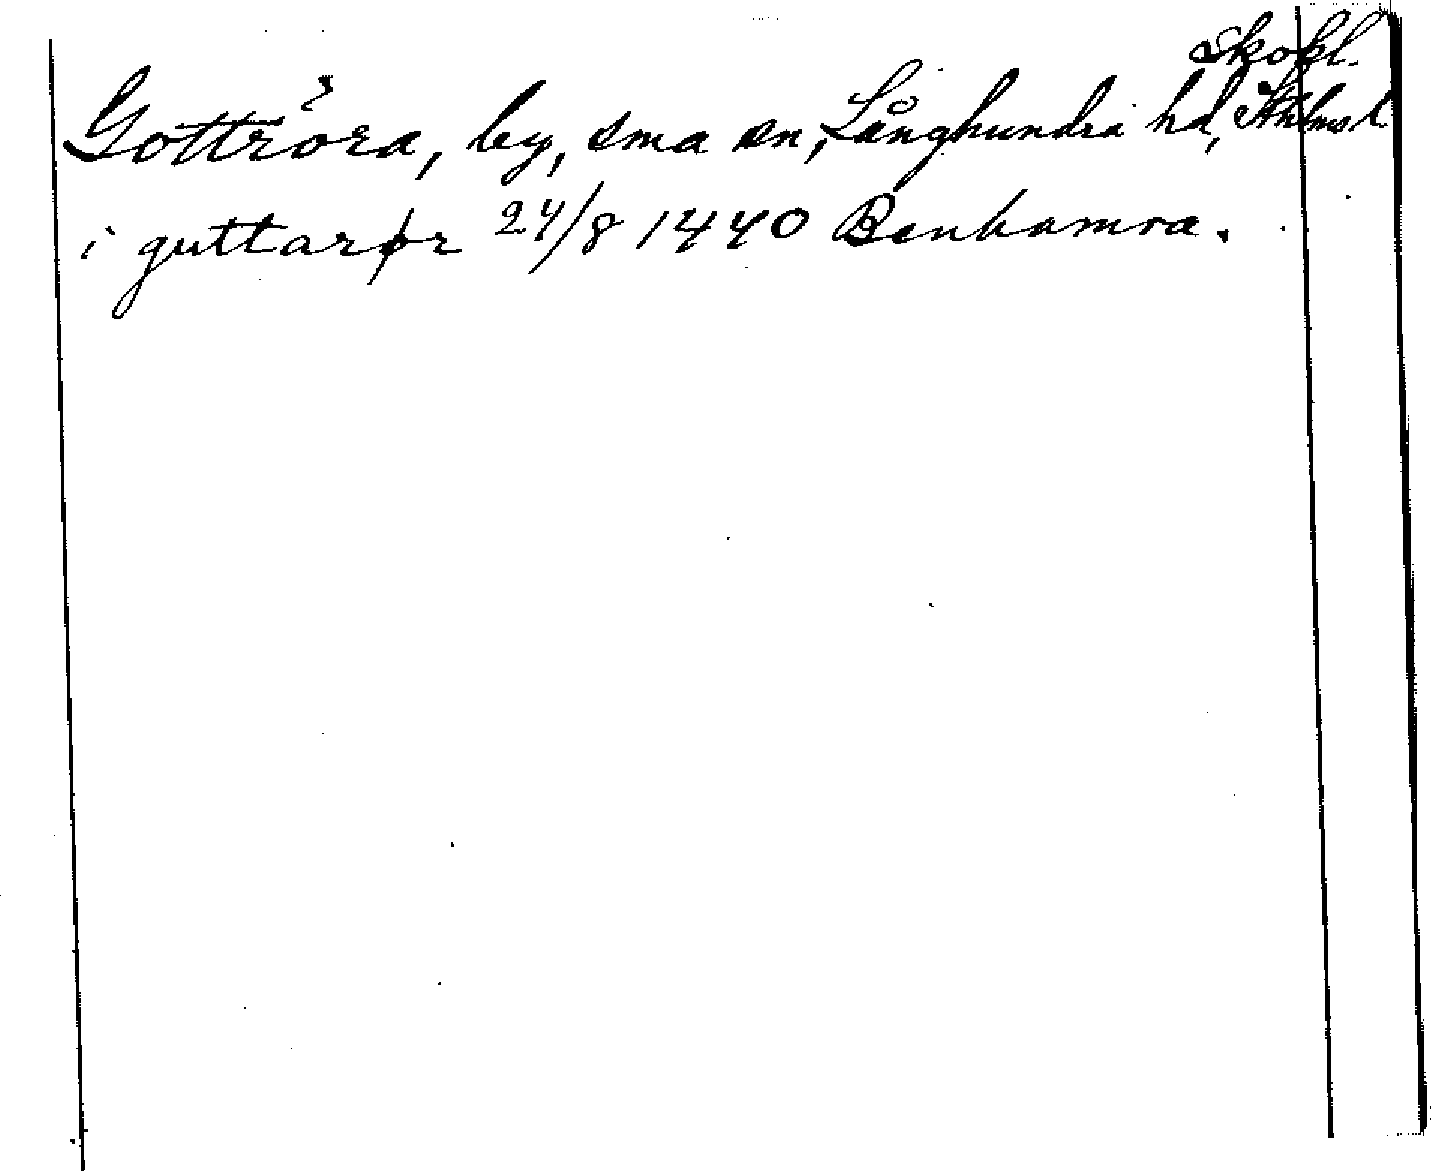 Skokl.
Gottröra, by, sma sn, Långhundra hd, Sthlms l.
i guttarør 24/8 1440 Benhamra.